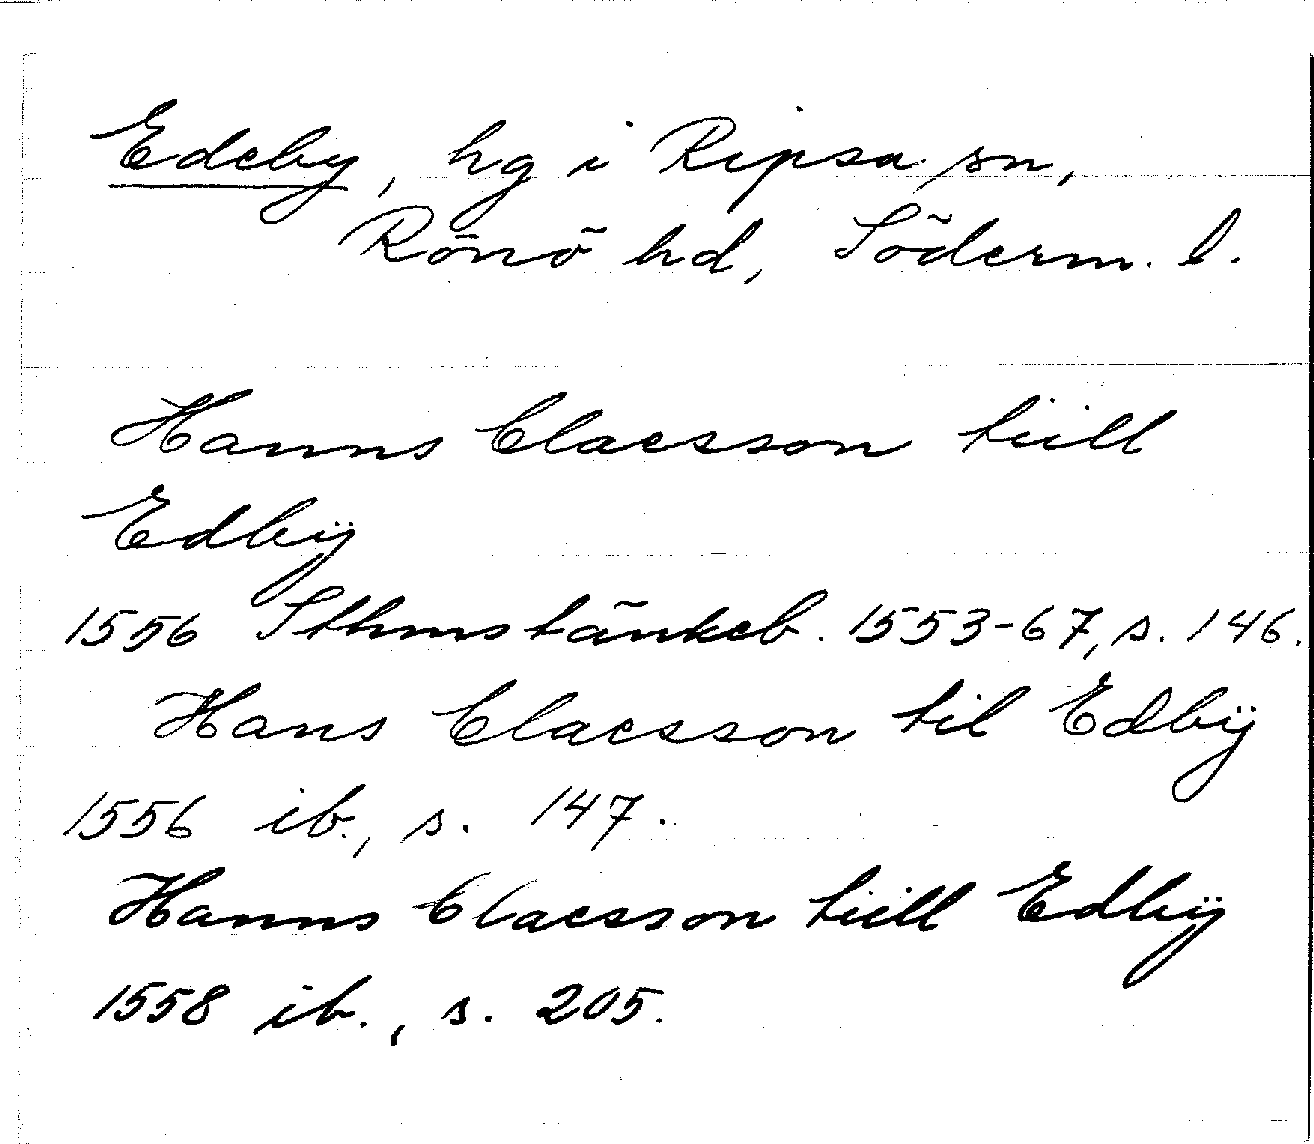 Edeby, hg i Ripsa sn,
Rönö hd, Söderm. l.
Hanns Claesson tiill
Edbÿ
1556 Sthmstänkeb. 1553-67, s. 146.
Hans Claesson til Edbÿ
1556 ib., s. 147.
Hanns Claesson tiill Edbÿ
1558 ib., s. 205.